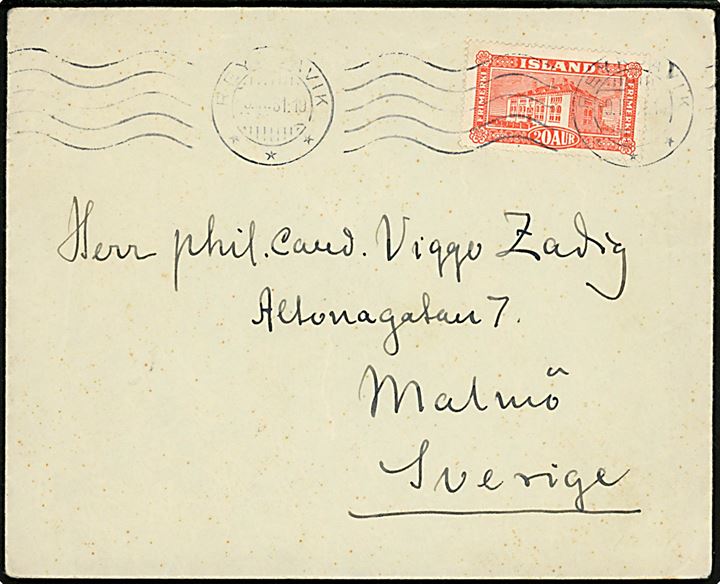 REYKJAVIK
ISLAND
FRIMERKI
FRIMERKI
20 AUR
Herr phil. cand. Viggo Zadig
Altonagatan 7.
Malmö
Sverige